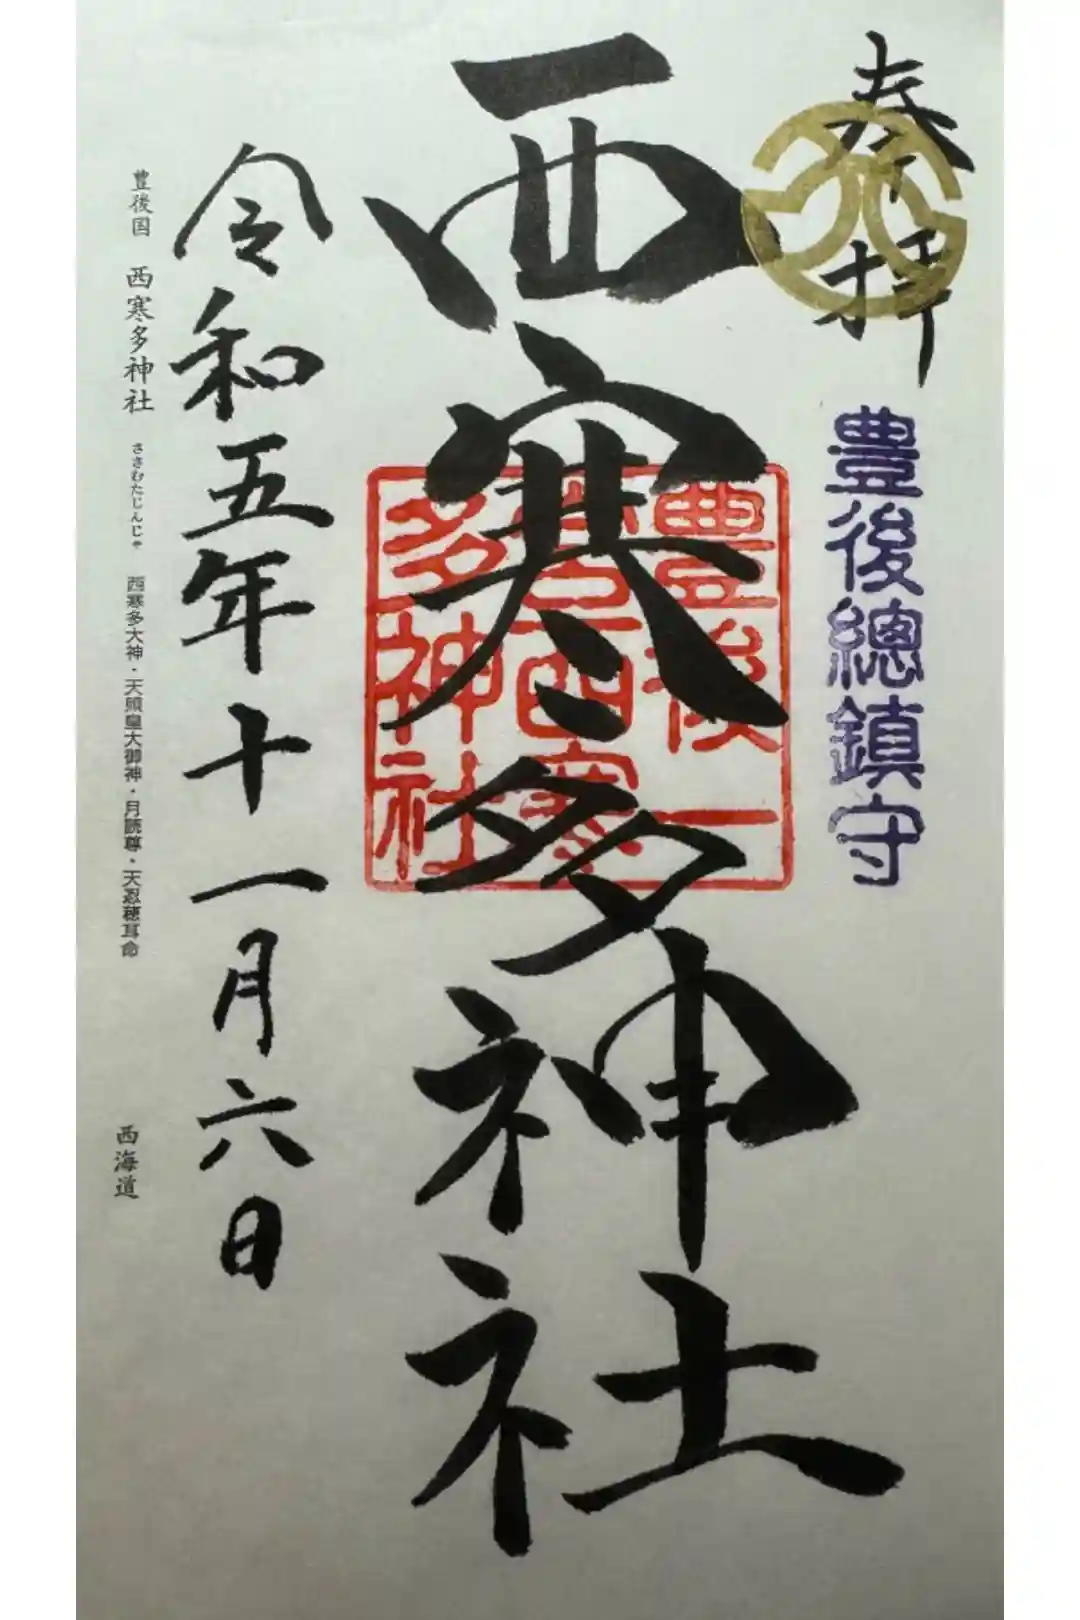 奉拝
豊後總鎮守
西寒多神社
豊後一
宮西寒
多神社
令和五年十一月六日
豊後国 西寒多神社 ささむたじんじゃ 西寒多大神・天照皇大御神・月読尊・天忍穂耳命
西海道